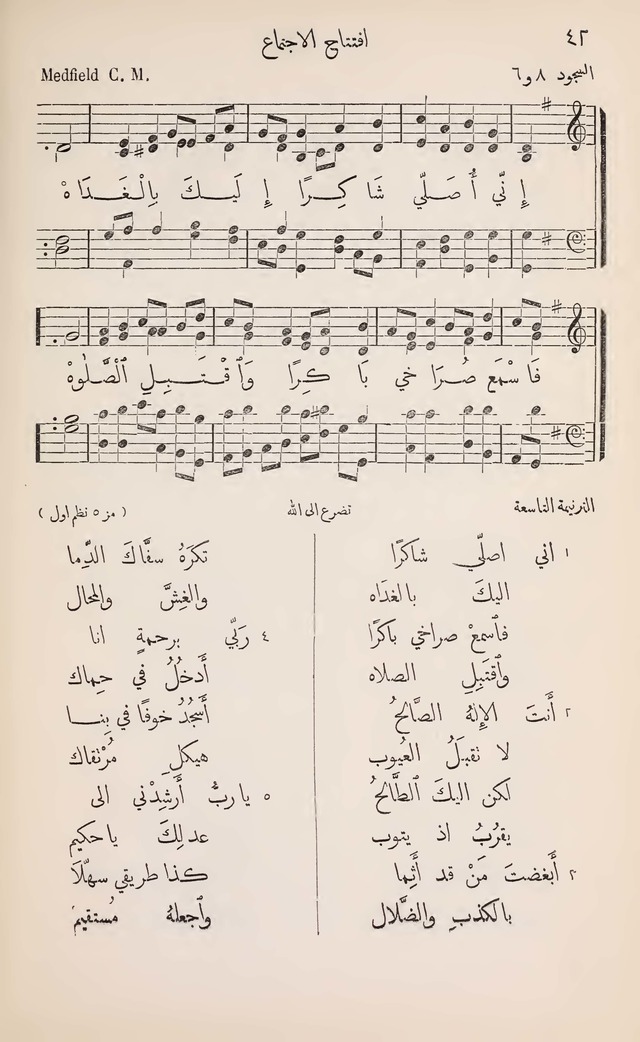 ٤٢
افتتاح الاجتماع
السجود ٨ و٦
Medfield C. M.
إِنِّي أُصَلِّي شَاكِرًا إِلَيكَ بِالْغَدَاهْ
فَاسْمَع صُرَاخي بَاكِرًا وَاقْتَبِلِ الصَّلوٰهْ
الترنيمة التاسعة
تضرع الى الله
( مز ٥ نظم اول )
١ اني اصلّي شاكرًا
اليكَ بالغداه
فاسمعْ صراخي باكرًا
واقتَبِلِ الصلاه
٢ أَنتَ الإِلهُ الصَّالحُ
لا تقبلُ العُيوب
لكن اليكَ الطَّالحُ
يقرُبُ اذ يتوب
٢ أَبغضتَ مَنْ قد أَثِما
بالكذبِ والضَّلال
تكرَهُ سفَّاكَ الدِّما
والغِشَّ والمحال
٤ رَبِّي برحمةٍ انا
أَدخُلُ في حِماك
أَسجُدُ خوفًا في بِنا
هيكلِ مُرْتقاك
٥ يا ربُّ أَرشِدْني الى
عدلِكَ يا حكيم
كذا طريقي سهِّلَا
واجعلهُ مُستقيم